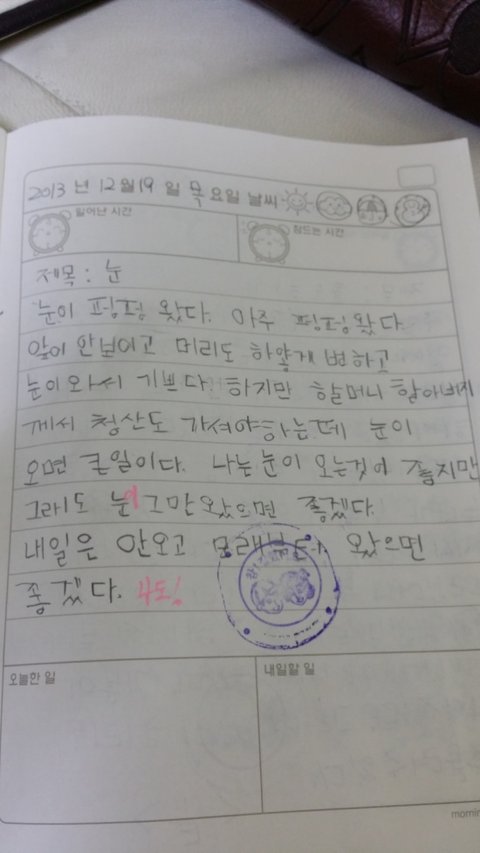 2013 년 12월 19 일 목 요일 날씨
일어난 시간 잠드는 시간
제목: 눈
눈이 펑펑 왔다. 아주 펑펑 왔다.
앞이 안보이고 머리도 하얗게 변하고
눈이와서 기쁘다. 하지만 할머니 할아버지
께서 청산도 가셔야하는데 눈이
오면 큰일이다. 나는 눈이 오는것이 좋지만
그래도 눈이 그만 왔으면 좋겠다.
내일은 안오고 모래부터 왔으면
좋겠다. 나도!
오늘한 일 내일할 일